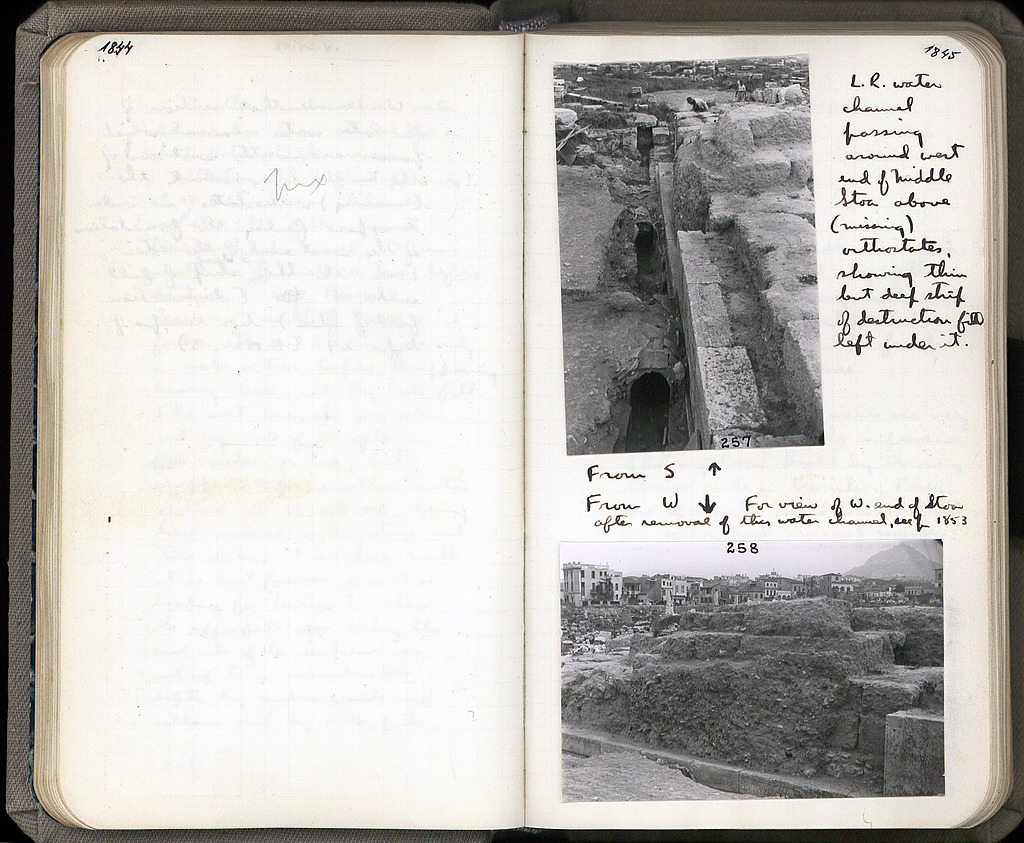 1844
pux
1845
L. R. water
channel
passing
around west
end of Middle
Stoa above
(missing)
orthostates,
showing thin
but deep strip
of destruction fill
left under it.
257
From S ↑
From W ↓ For view of W. end of Stoa
after removal of this water channel, see p 1853
258